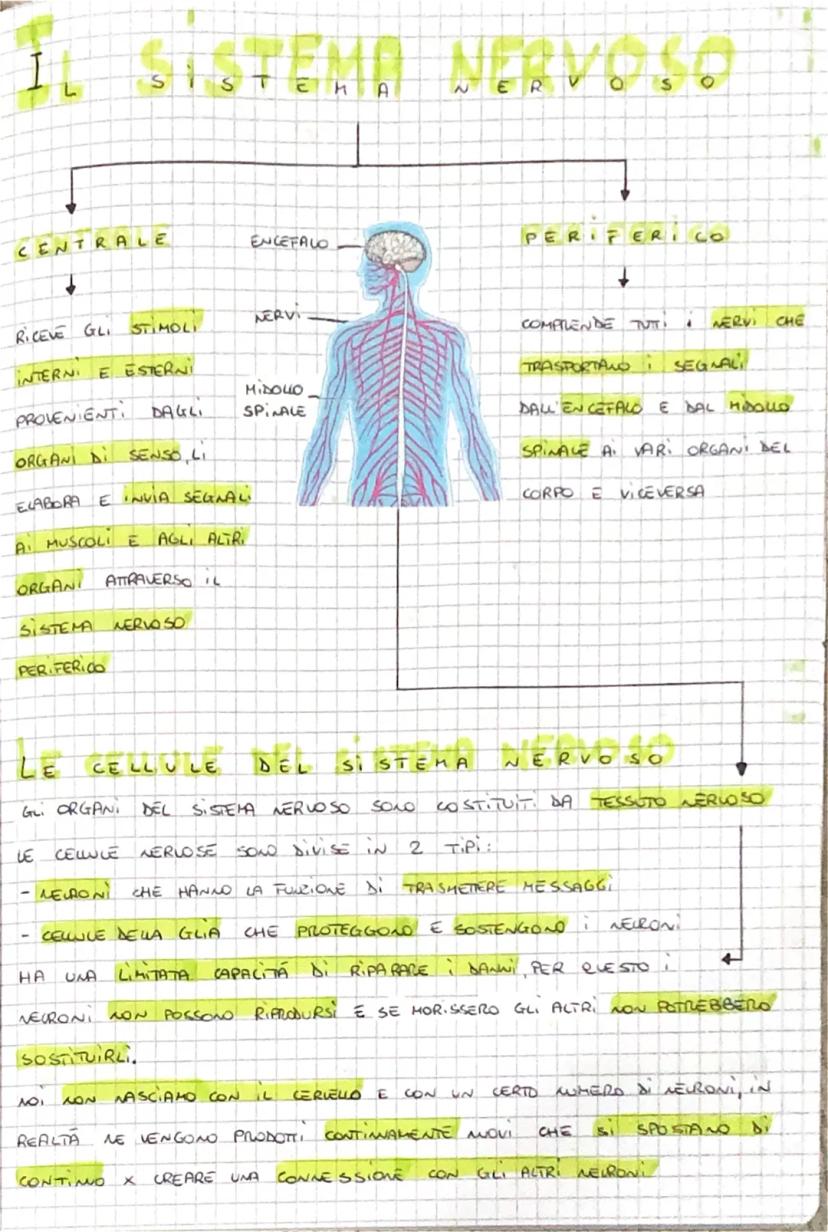 IL SISTEMA NERVOSO
CENTRALE
RICEVE GLI STIMOLI
INTERNI E ESTERNI
PROVENIENTI DAGLI
ORGANI DI SENSO, LI
ELABORA E INVIA SEGNALI
AI MUSCOLI E AGLI ALTRI
ORGANI ATTRAVERSO IL
SISTEMA NERVOSO
PERIFERICO
ENCEFALO
NERVI
MIDOLLO
SPINALE
PERIFERICO
COMPRENDE TUTI I NERVI CHE
TRASPORTANO I SEGNALI
DALL'ENCEFALO E DAL MIDOLLO
SPINALE AI VARI ORGANI DEL
CORPO E VICEVERSA
LE CELLULE DEL SISTEMA NERVOSO
GLI ORGANI DEL SISTEMA NERVOSO SONO COSTITUITI DA TESSUTO NERVOSO
LE CELLULE NERVOSE SONO DIVISE IN 2 TIPI:
- NEURONI CHE HANNO LA FUNZIONE DI TRASMETTERE MESSAGGI
- CELLULE DELLA GLIA CHE PROTEGGONO E SOSTENGONO I NEURONI
HA UNA LIMITATA CAPACITÁ DI RIPARARE I DANNI, PER QUESTO I
NEURONI NON POSSONO RIPRODURSI E SE MORISSERO GLI ALTRI NON POTREBBERO
SOSTITUIRLI.
NOI NON NASCIAMO CON IL CERVELLO E CON UN CERTO NUMERO DI NEURONI, IN
REALTÁ NE VENGONO PRODOTTI CONTINUAMENTE NUOVI CHE SI SPOSTANO DI
CONTINUO X CREARE UNA CONNESSIONE CON GLI ALTRI NEURONI